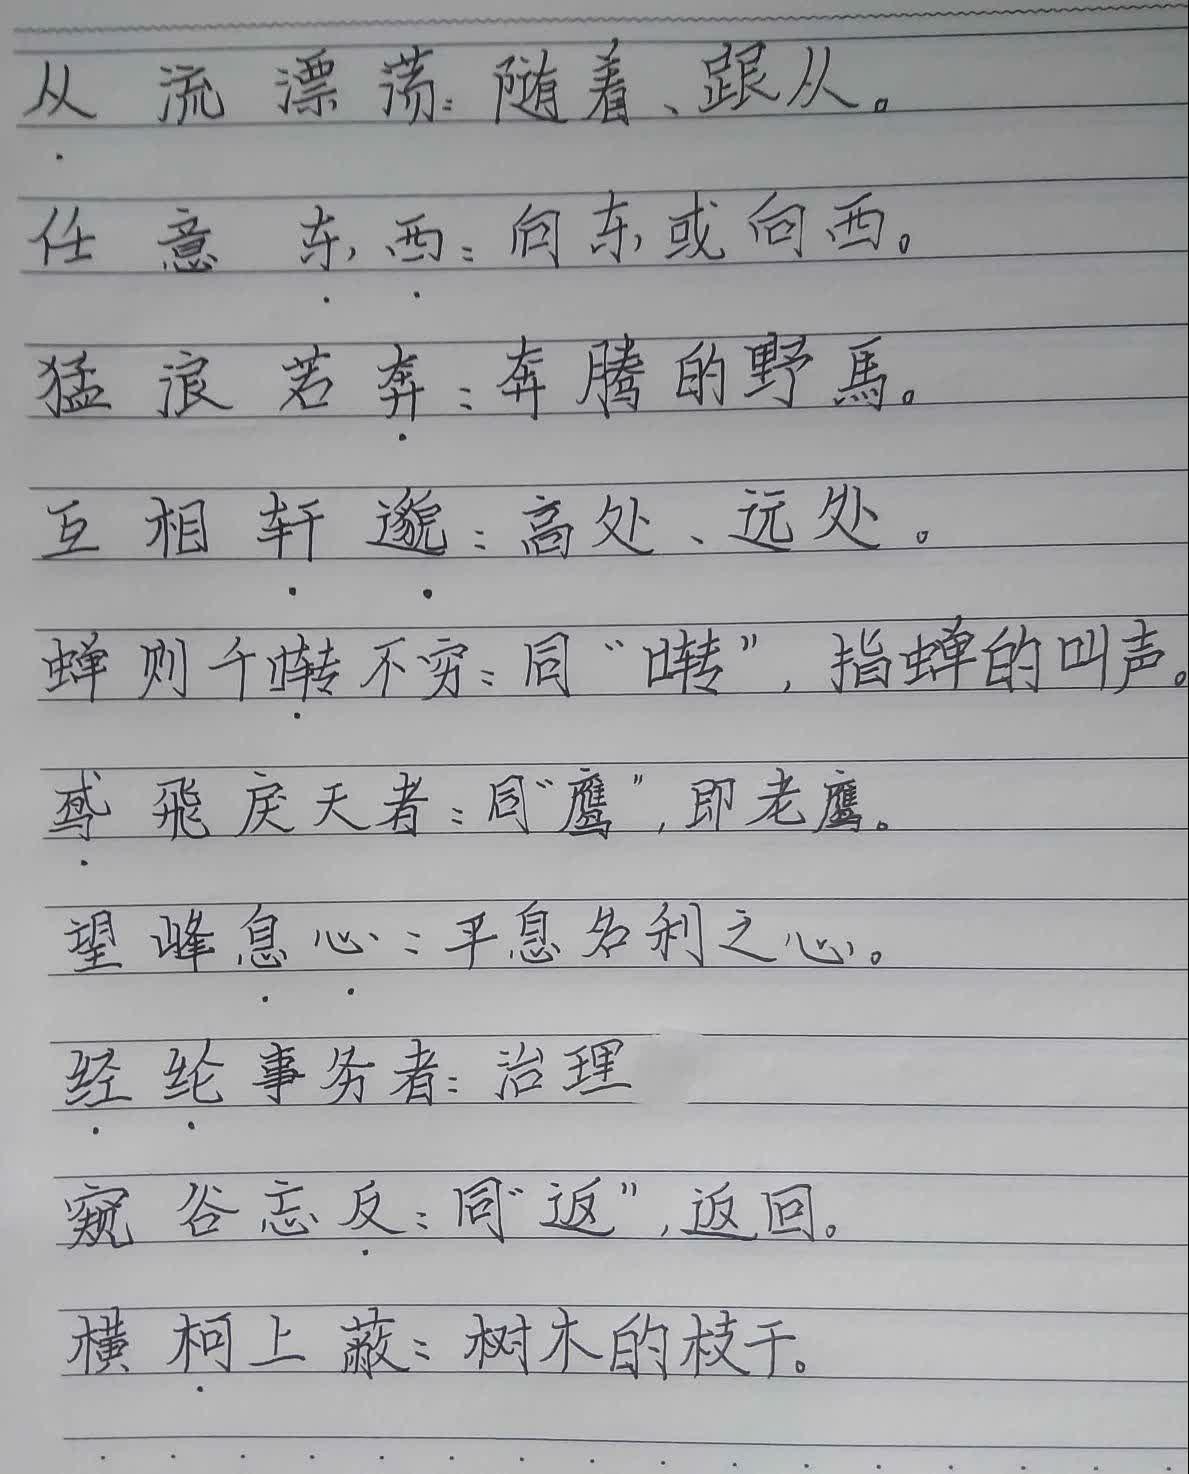 从流漂荡：随着、跟从。
任意东西：向东或向西。
猛浪若奔：奔腾的野馬。
互相轩邈：高处、远处。
蝉则千啭不穷：同“啭”，指蝉的叫声。
鸢飛戾天者：同“鹰”，即老鹰。
望峰息心：平息名利之心。
经纶事务者：治理
窥谷忘反：同“返”，返回。
横柯上蔽：树木的枝干。